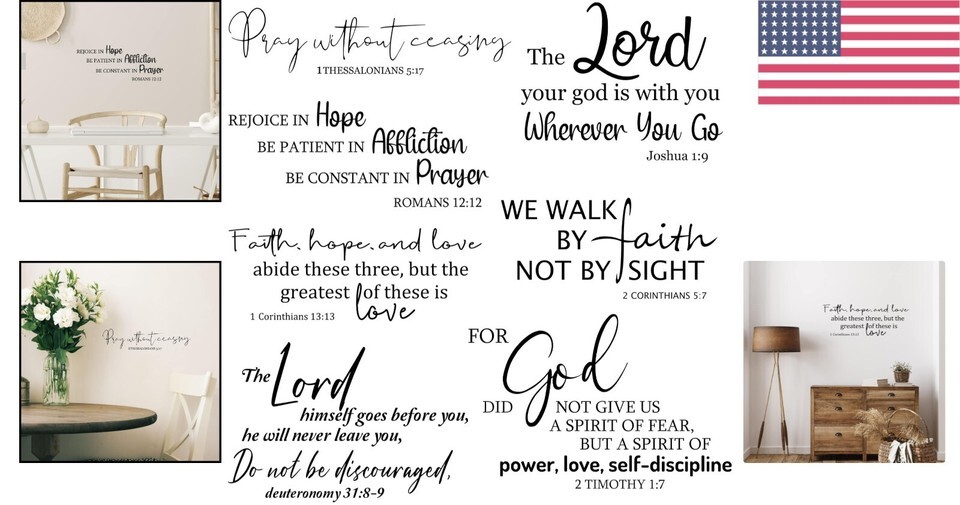 REJOICE IN Hope
BE PATIENT IN Affliction
BE CONSTANT IN Prayer
ROMANS 12:12
Pray without ceasing
1 THESSALONIANS 5:17
REJOICE IN Hope
BE PATIENT IN Affliction
BE CONSTANT IN Prayer
ROMANS 12:12
The Lord
your god is with you
Wherever You Go
Joshua 1:9
WE WALK
BY faith
NOT BY SIGHT
2 CORINTHIANS 5:7
Faith, hope, and love
abide these three, but the
greatest of these is
love
1 Corinthians 13:13
Pray without ceasing
1 THESSALONIANS 5:17
The Lord
himself goes before you,
he will never leave you,
Do not be discouraged,
deuteronomy 31:8-9
FOR
God
DID NOT GIVE US
A SPIRIT OF FEAR,
BUT A SPIRIT OF
power, love, self-discipline
2 TIMOTHY 1:7
Faith, hope, and love
abide these three, but the
greatest of these is
love
1 Corinthians 13:13